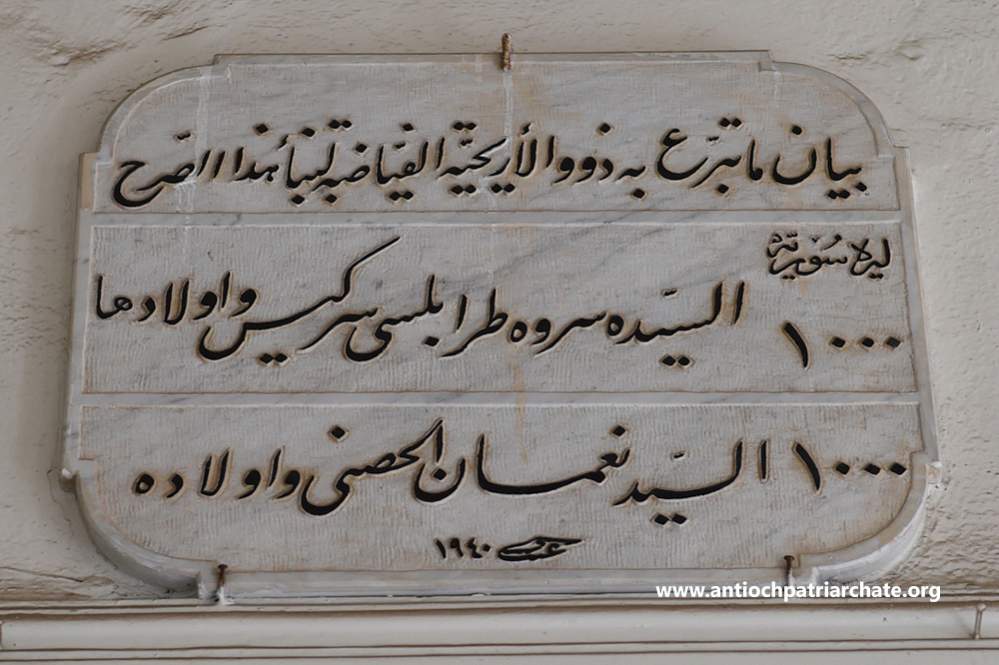 بيان ما تبرّع به ذوو الأريحيّة الفيّاضة لبناء هذا الصّرح
ليرة سوريّة
١٠٠٠ السيّده سروه طرابلسي سركيس واولادها
١٠٠٠ السيّد نعمان الحصني واولاده
١٩٤٠
www.antiochpatriarchate.org